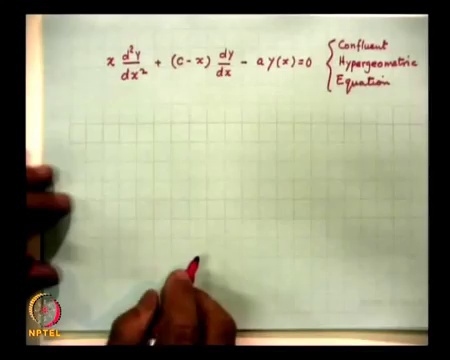 x d²y/dx² + (c - x) dy/dx - a y(x) = 0
Confluent
Hypergeometric
Equation
NPTEL